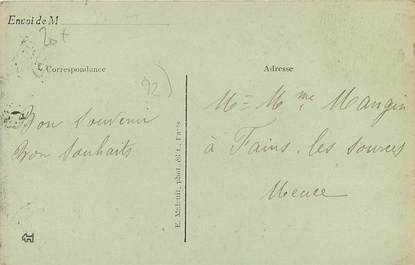 Envoi de M
20+
Correspondance
Adresse
92)
Bon Souvenir
Bon Souhaits
M= Mme Mangin
à Fains les Sources
Meuse
E. Malcuit, phot.-édit. Paris